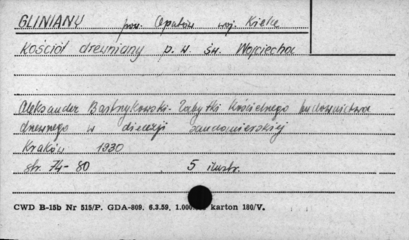 GLINIANY pow. Opatów woj. Kielce
Kościół drewniany p. w. św. Wojciecha
Aleksander Bastrzykowski - Zabytki kościelnego budownictwa
drewnego w diecezji sandomierskiej
Kraków 1930
str. 74-80 5 ilustr.
CWD B-15b Nr 515/P. GDA-809. 6.3.59. 1.000 karton 180/V.